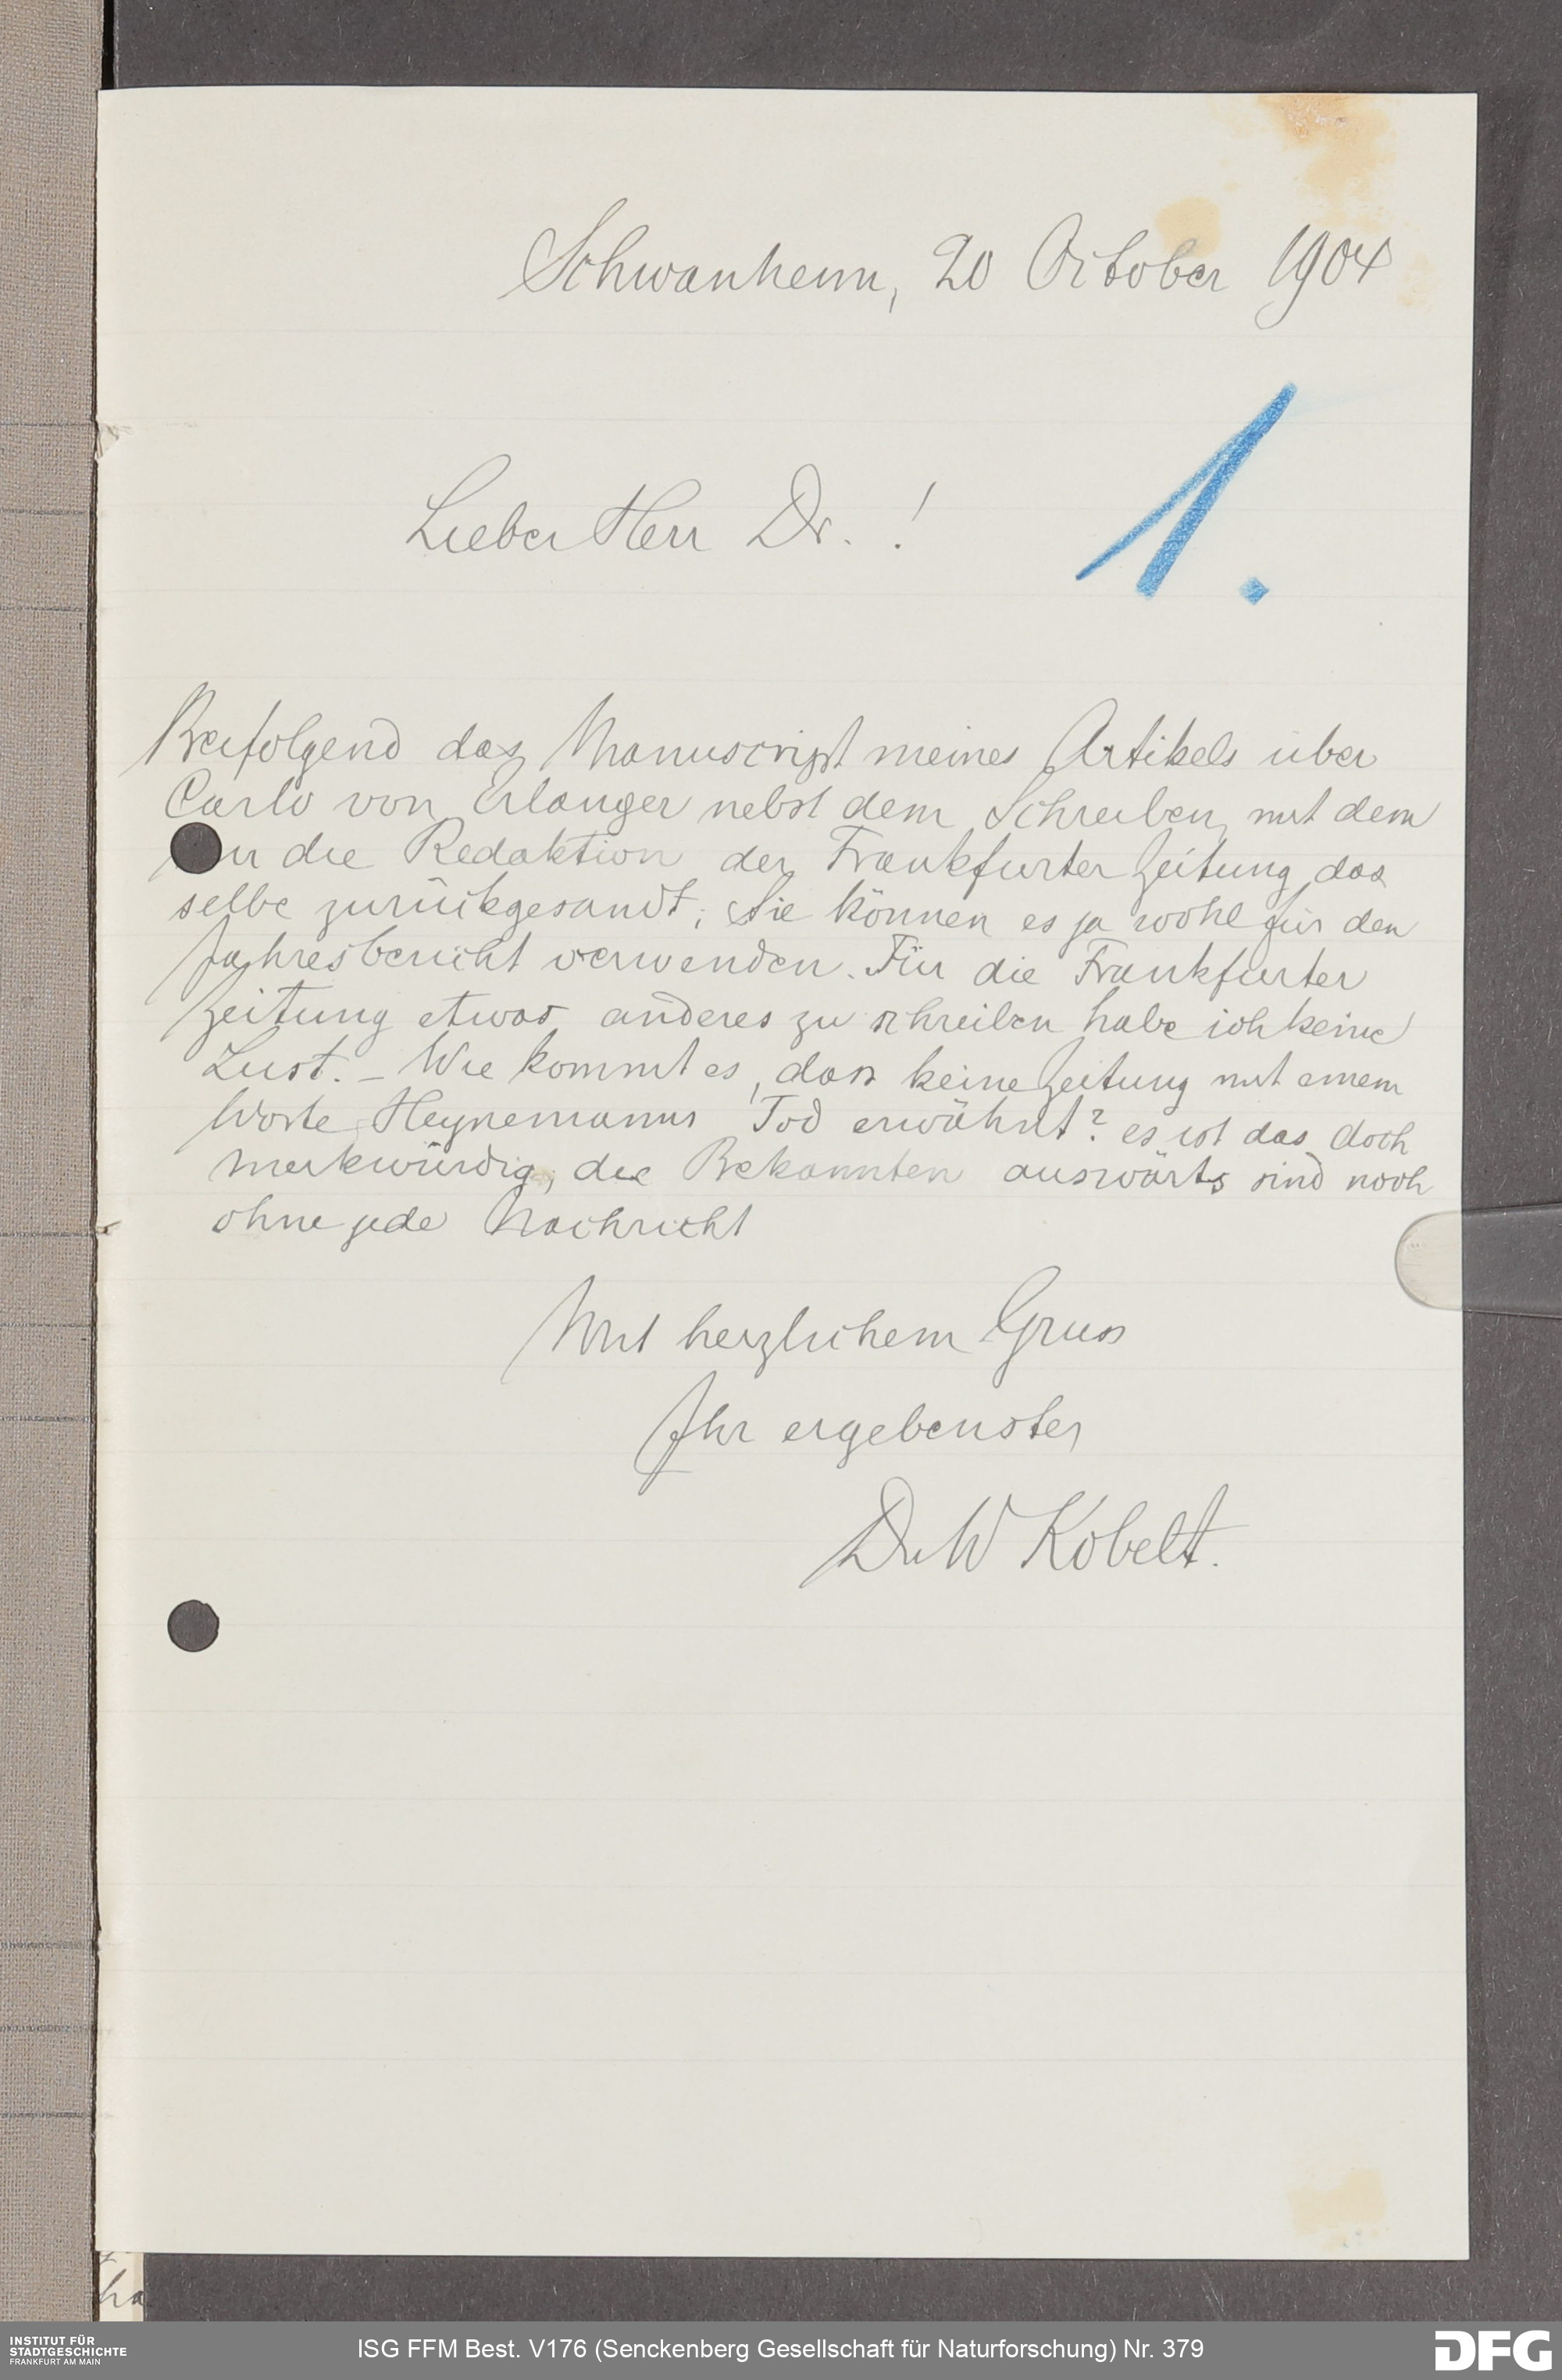 Schwanheim, 20 October 1904
1.
Lieber Herr Dr. !
Beifolgend das Manuscript meines Artikels über
Carlo von Erlanger nebst dem Schreiben mit dem
mir die Redaktion der Frankfurter Zeitung das
selbe zurückgesandt; Sie können es ja wohl für den
Jahresbericht verwenden. Für die Frankfurter
Zeitung etwas anderes zu schreiben habe ich keine
Lust. – Wie kommt es, dass keine Zeitung mit einem
Worte Heynemanns Tod erwähnt? es ist das doch
merkwürdig; die Bekannten auswärts sind noch
ohne jede Nachricht
Mit herzlichem Gruss
Ihr ergebenster
Dr W Kobelt.
ha
INSTITUT FÜR
STADTGESCHICHTE
FRANKFURT AM MAIN
ISG FFM Best. V176 (Senckenberg Gesellschaft für Naturforschung) Nr. 379
DFG